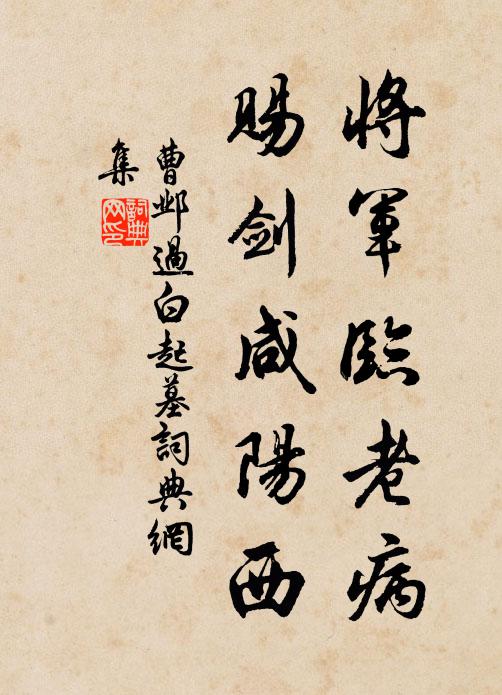 將軍臨老病
賜剑咸陽西
曹邺過白起墓詞典網
集
詞典
网印